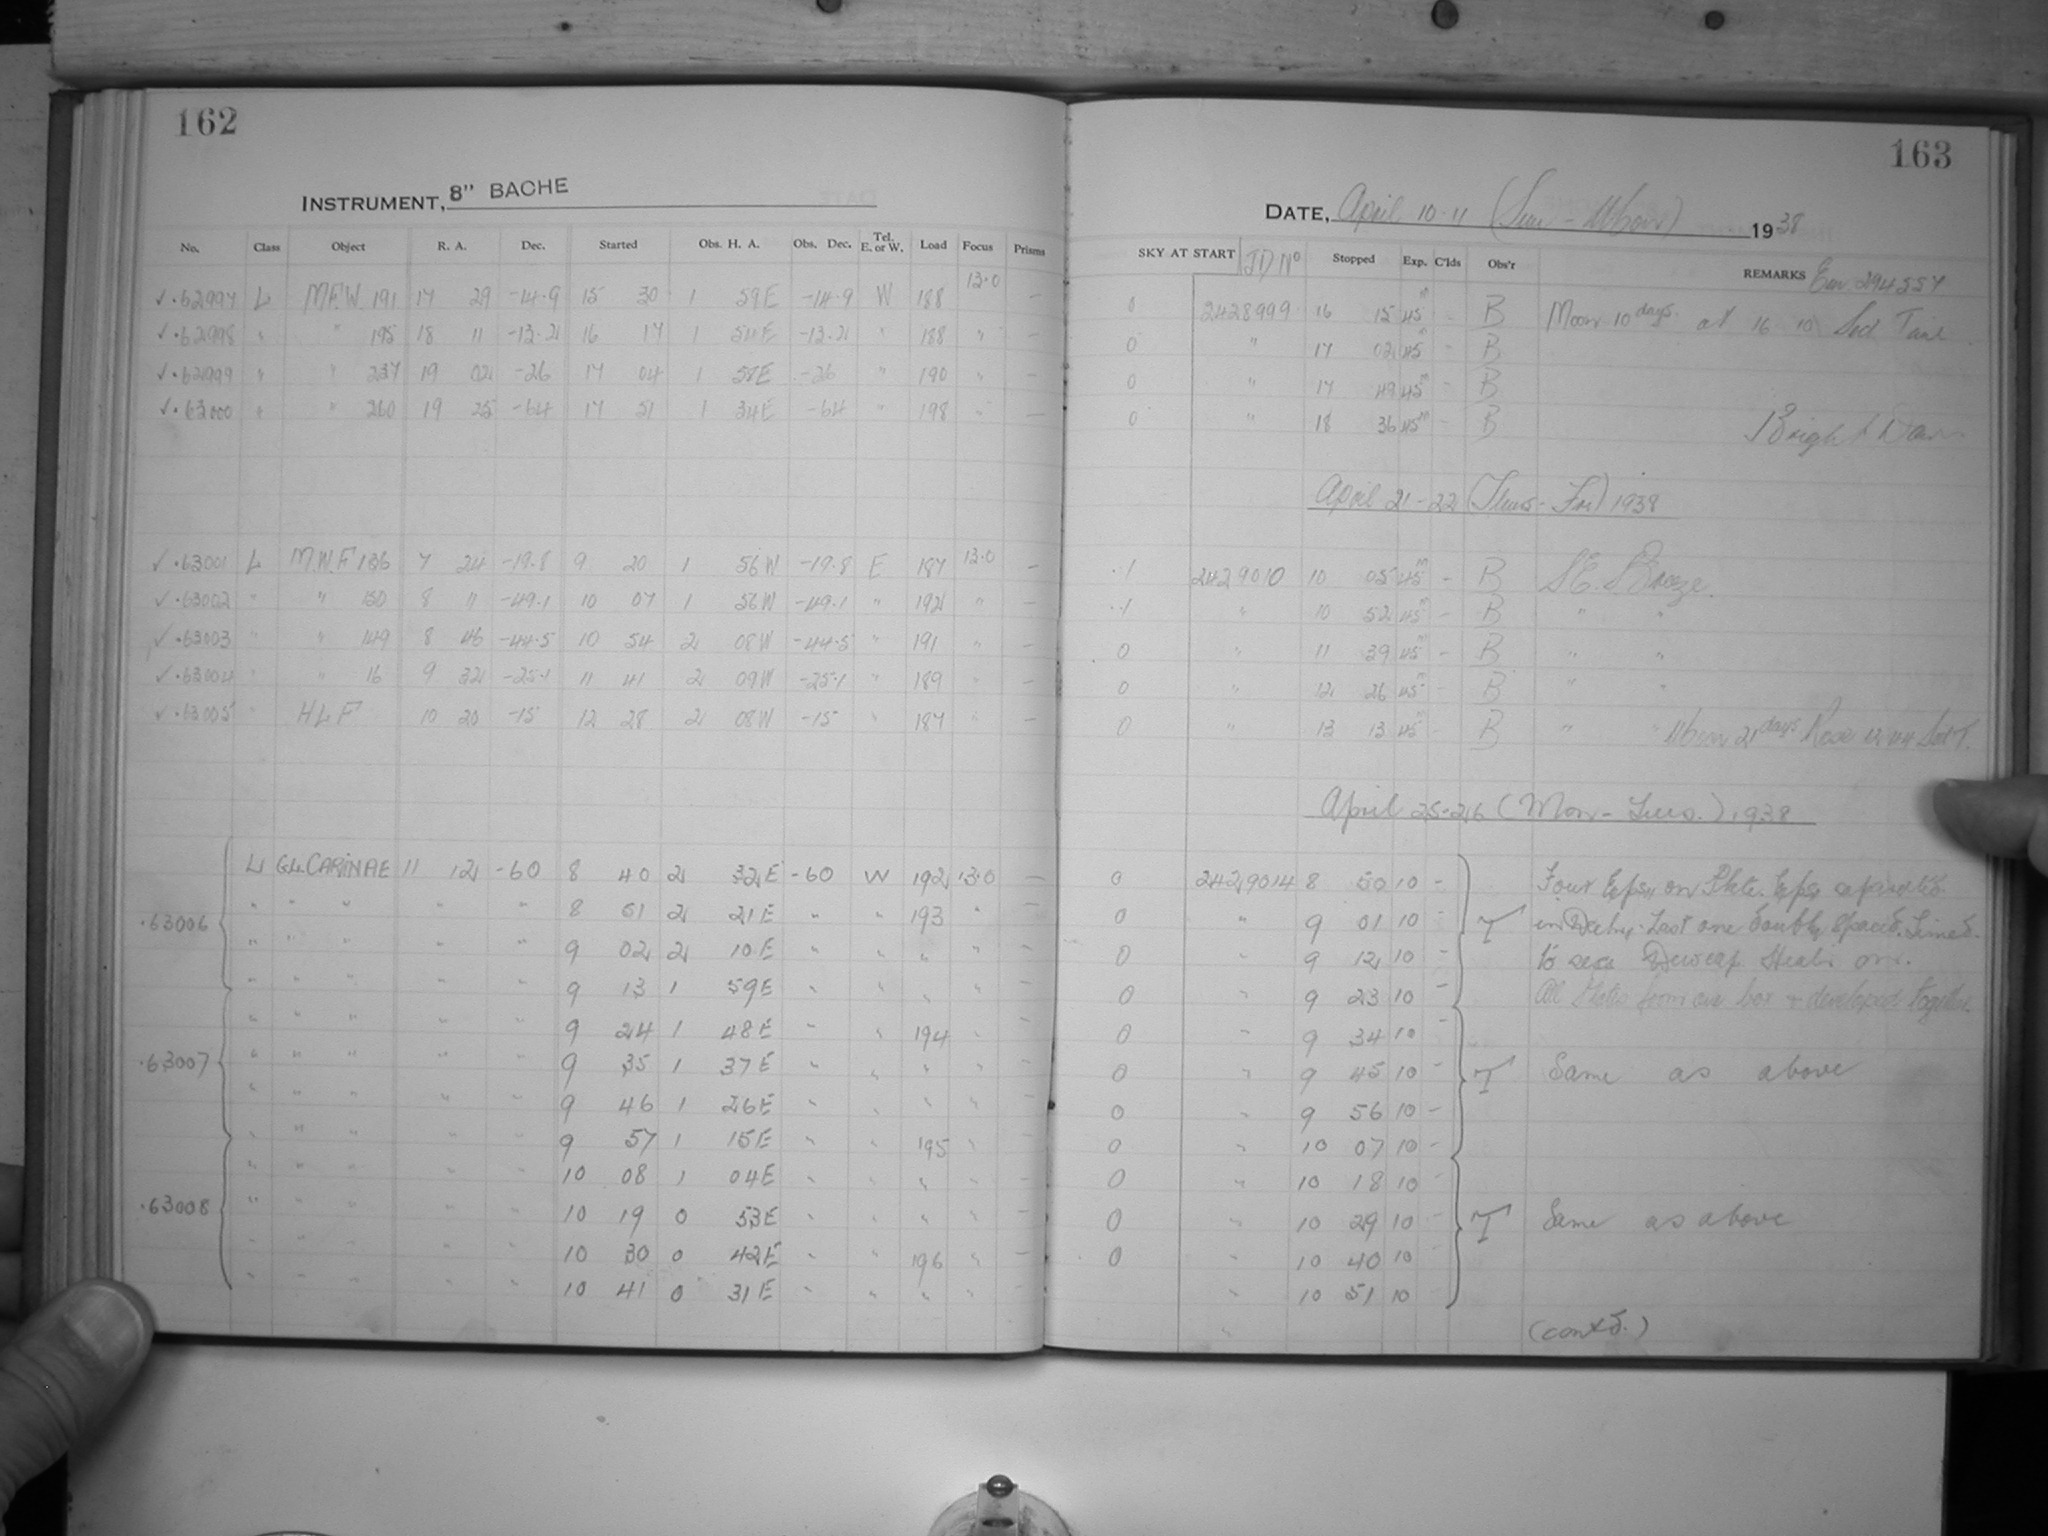 162
INSTRUMENT, 8" BACHE
No. Class Object R. A. Dec. Started Obs. H. A. Obs. Dec. Tel. E. or W. Load Focus Prisms
✓.62997 L M.F.W. 191 17 29 -14.9 15 30 1 59E -14.9 W 188 13.0 —
✓.62998 " " 195 18 11 -13.2 16 17 1 54E -13.2 " 188 " —
✓.62999 " " 237 19 02 -26 17 04 1 58E -26 " 190 " —
✓.63000 " " 260 19 25 -64 17 51 1 34E -64 " 198 " —
✓.63001 L M.W.F 136 7 24 -19.8 9 20 1 56W -19.8 E 187 13.0 —
✓.63002 " " 150 8 11 -49.1 10 07 1 56W -49.1 " 192 " —
✓.63003 " " 149 8 46 -44.5 10 54 2 08W -44.5 " 191 " —
✓.63004 " " 16 9 32 -25.1 11 41 2 09W -25.1 " 189 " —
✓.63005 " HLF 10 20 -15 12 28 2 08W -15 " 187 " —
L GL CARINAE 11 12 -60 8 40 2 32E -60 W 192 13.0 —
.63006 " " " " " 8 51 2 21E " " 193 " —
" " " " " 9 02 2 10E " " " " —
" " " " " 9 13 1 59E " " " " —
" " " " " 9 24 1 48E " " 194 " —
.63007 " " " " " 9 35 1 37E " " " " —
" " " " " 9 46 1 26E " " " " —
" " " " " 9 57 1 15E " " 195 " —
" " " " " 10 08 1 04E " " " " —
.63008 " " " " " 10 19 0 53E " " " " —
" " " " " 10 30 0 42E " " 196 " —
" " " " " 10 41 0 31E " " " " —
163
DATE, April 10-11 (Sun - Mon) 1938
SKY AT START JD No Stopped Exp. C'lds Obs'r REMARKS
0 2428999 16 15 45m - B Moon 10 days at 16 10 Sid Time
0 " 17 02 45m - B
0 " 17 49 45m - B
0 " 18 36 45m - B Bright Dawn
April 21-22 (Thurs - Fri) 1938
.1 2429010 10 05 45m - B S.E. Breeze.
.1 " 10 52 45m - B " "
0 " 11 39 45m - B " "
0 " 12 26 45m - B " "
0 " 13 13 45m - B " " Moon 21 days Rose
April 25-26 (Mon - Tues.) 1938
0 2429014 8 50 10 - Four Exps. on Plate. Exps. separated
0 " 9 01 10 - T in Dec. Last one double spaced. Timed
0 " 9 12 10 - to
0 " 9 23 10 - All Plates from one box + developed together.
0 " 9 34 10 -
0 " 9 45 10 - T Same as above
0 " 9 56 10 -
0 " 10 07 10 -
0 " 10 18 10 -
0 " 10 29 10 - T Same as above
0 " 10 40 10 -
" 10 51 10 -
(contd.)